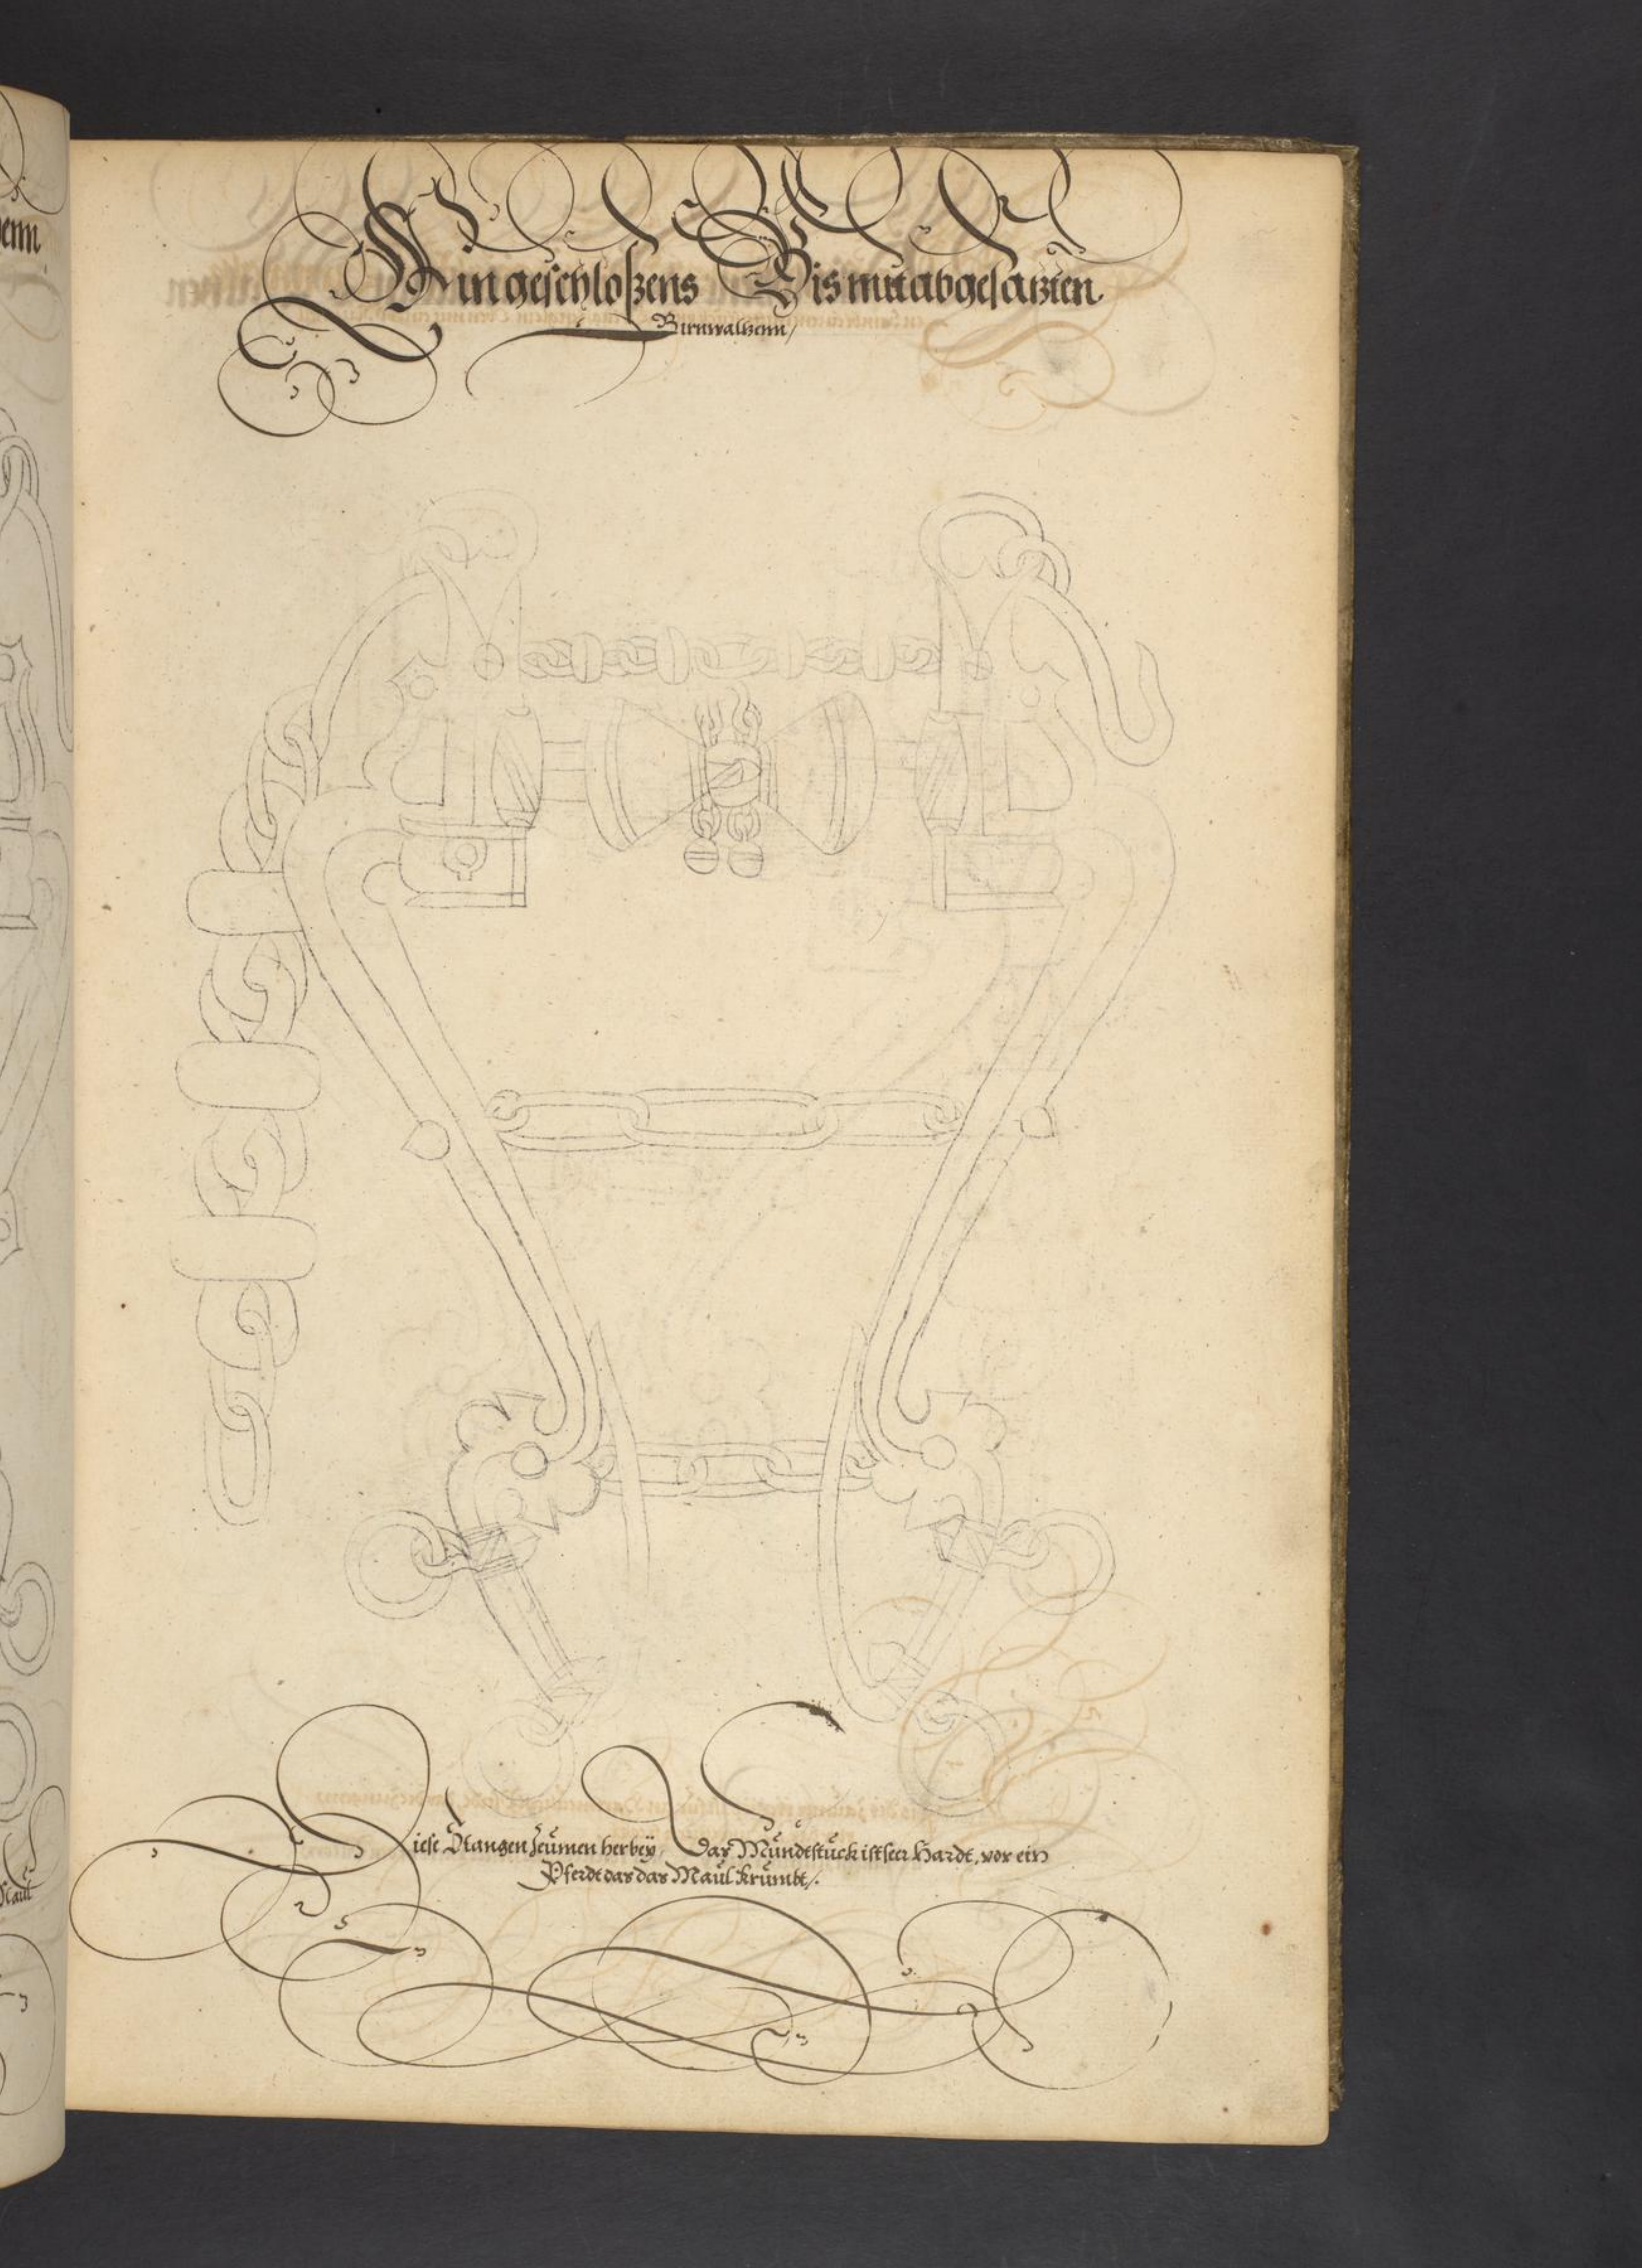 Ein geschloßens Bis mit abgesatzten
Birnwaltzenn/
Diese Stangen Zeumen herbey, Das Mundtstück ist seer Hardt, vor ein
Pferdt das das Maul krümbt/.
enn
Maul